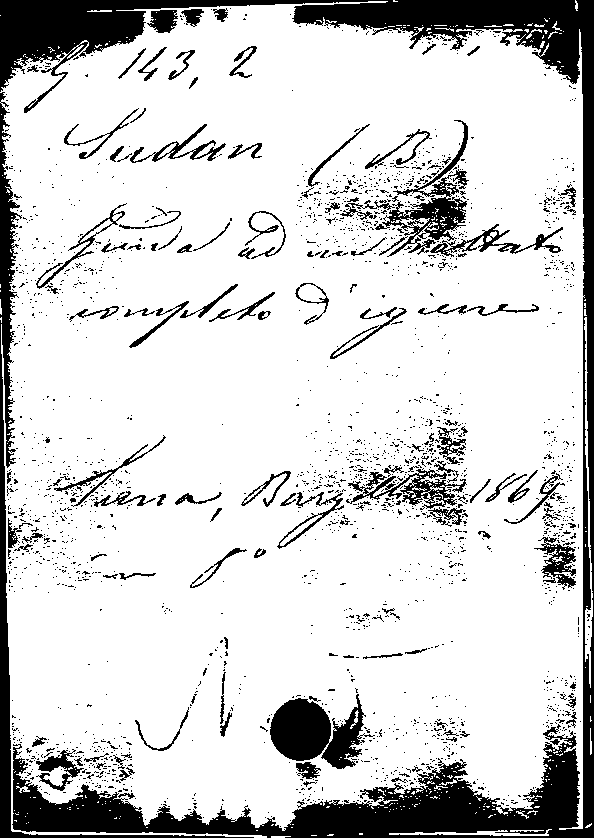 G. 143, 2
Sudan (B)
Guida ad un trattato
completo d'igiene
Siena, Bargellini 1869
in 8º
N